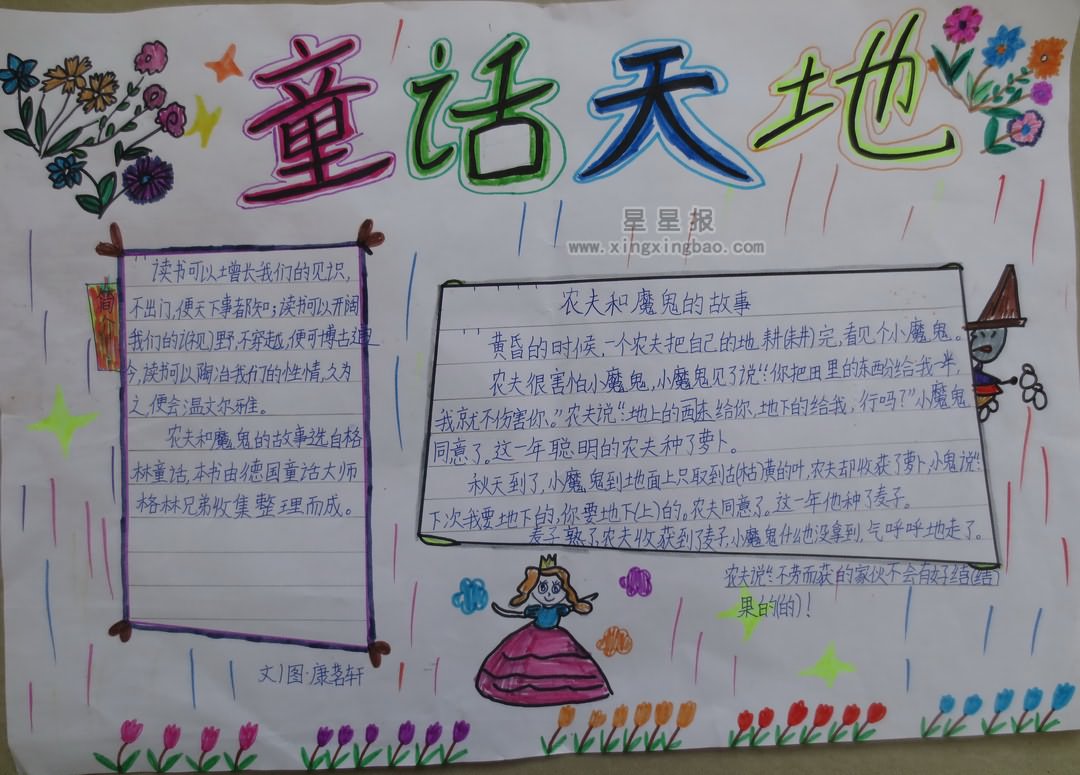 童话天地
星星报
www.xingxingbao.com
简介
读书可以增长我们的见识,
不出门,便天下事都知;读书可以开阔
我们的(视)野,不穿越,便可博古通
今,读书可以陶冶我们的性情,久为
之,便会温文尔雅。
农夫和魔鬼的故事选自格
林童话,本书由德国童话大师
格林兄弟收集整理而成。
文/图·康茗轩
农夫和魔鬼的故事
黄昏的时候,一个农夫把自己的地耕(耕)完,看见个小魔鬼。
农夫很害怕小魔鬼,小魔鬼见了说:“你把田里的东西分给我一半,
我就不伤害你。”农夫说:“地上的西东给你,地下的给我,行吗?”小魔鬼
同意了。这一年聪明的农夫种了萝卜。
秋天到了,小魔鬼到地面上只取到古(枯)黄的叶,农夫却收获了萝卜,小鬼说:“
下次我要地下的,你要地下(上)的。农夫同意了。这一年他种了麦子。
麦子熟了,农夫收获到了麦子,小魔鬼什么也没拿到,气呼呼地走了。
农夫说:“不劳而获的家伙不会有好结(结)
果的(的)!